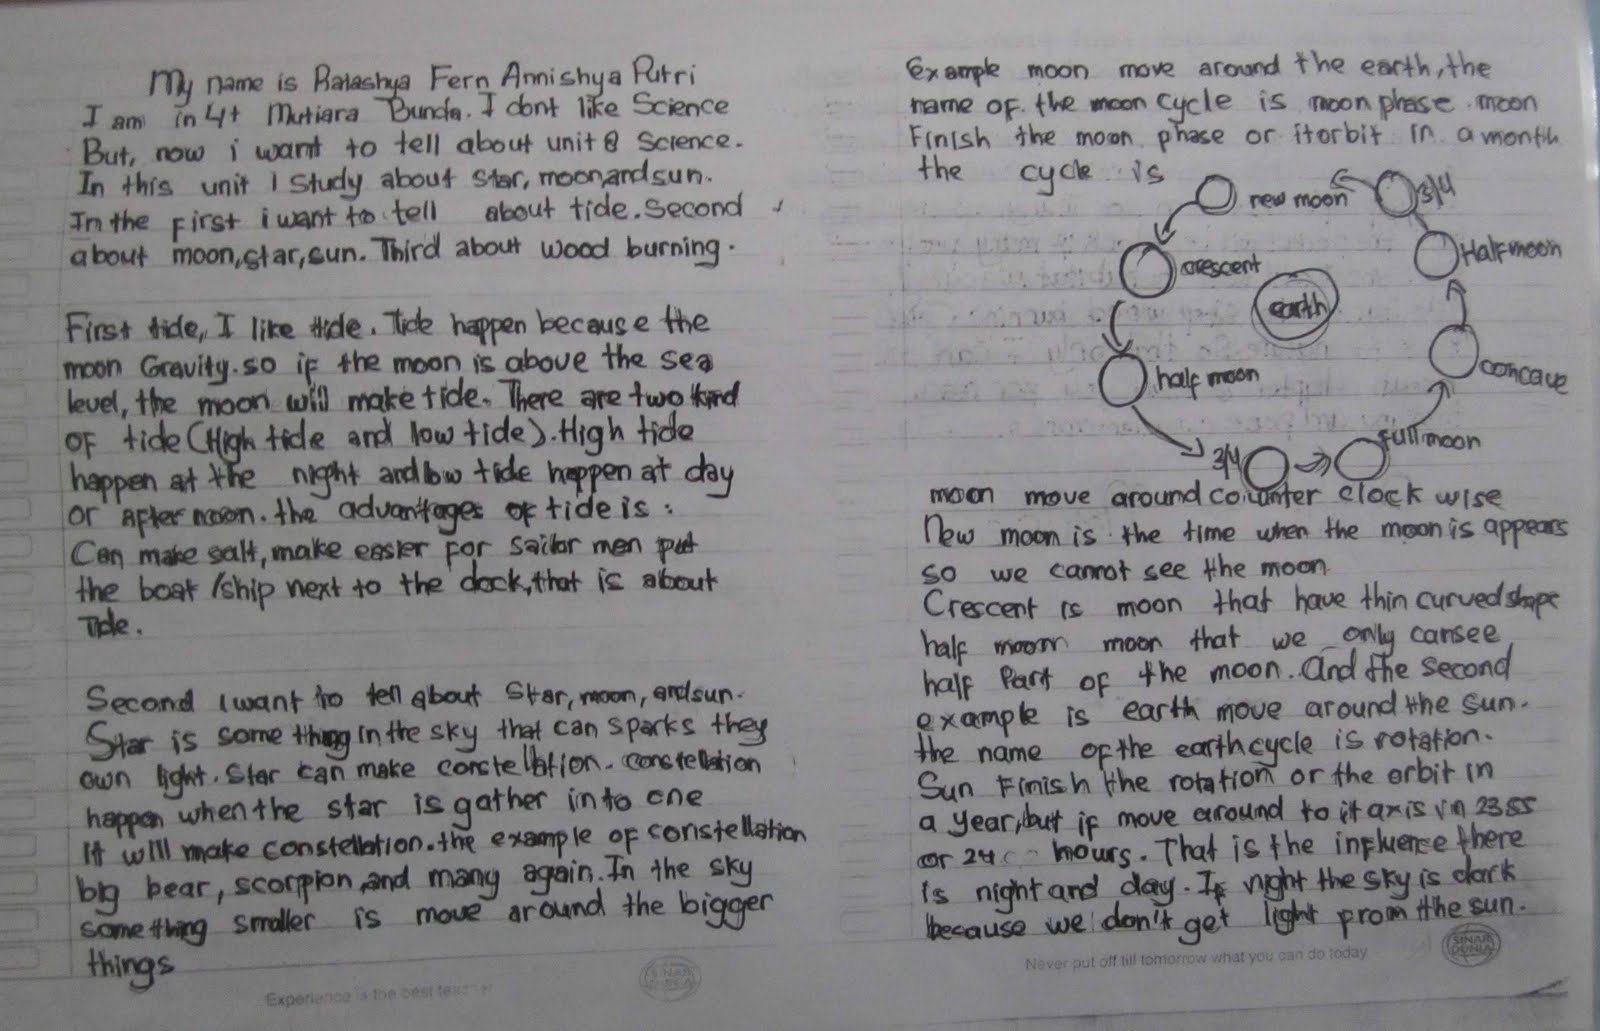 My name is Ratashya Fern Annishya Putri
I am in 4t Mutiara Bunda. I dont like Science
But, now i want to tell about unit 8 science.
In this unit I study about star, moon, and sun.
In the first i want to tell about tide. Second
about moon, star, sun. Third about wood burning.
First tide, I like tide. Tide happen because the
moon Gravity. so if the moon is above the sea
level, the moon will make tide. There are two kind
of tide (High tide and low tide). High tide
happen at the night and low tide happen at day
or after noon. the advantages of tide is :
Can make salt, make easier for sailor men put
the boat /ship next to the dock, that is about
Tide.
Second I want to tell about Star, moon, and sun.
Star is some thing in the sky that can sparks they
own light. Star can make constellation. constellation
happen when the star is gather in to one
it will make constellation. the example of constellation
big bear, scorpion, and many again. In the sky
some thing smaller is move around the bigger
things
Experience is the best teacher
SINAR DUNIA
Example moon move around the earth, the
name of the moon cycle is moon phase. moon
Finish the moon phase or it orbit in a month
the cycle is
new moon
3/4
crescent
Half moon
earth
half moon
concave
full moon
3/4
moon move around counter clock wise
New moon is the time when the moon is appears
so we cannot see the moon
Crescent is moon that have thin curved shape
half moom moon that we only can see
half part of the moon. And the second
example is earth move around the sun.
the name of the earth cycle is rotation.
Sun Finish the rotation or the orbit in
a year, but if move around to it axis in 23 55
or 24 hours. That is the influence there
is night and day. If night the sky is dark
because we don't get light prom the sun.
Never put off till tomorrow what you can do today
SINAR DUNIA